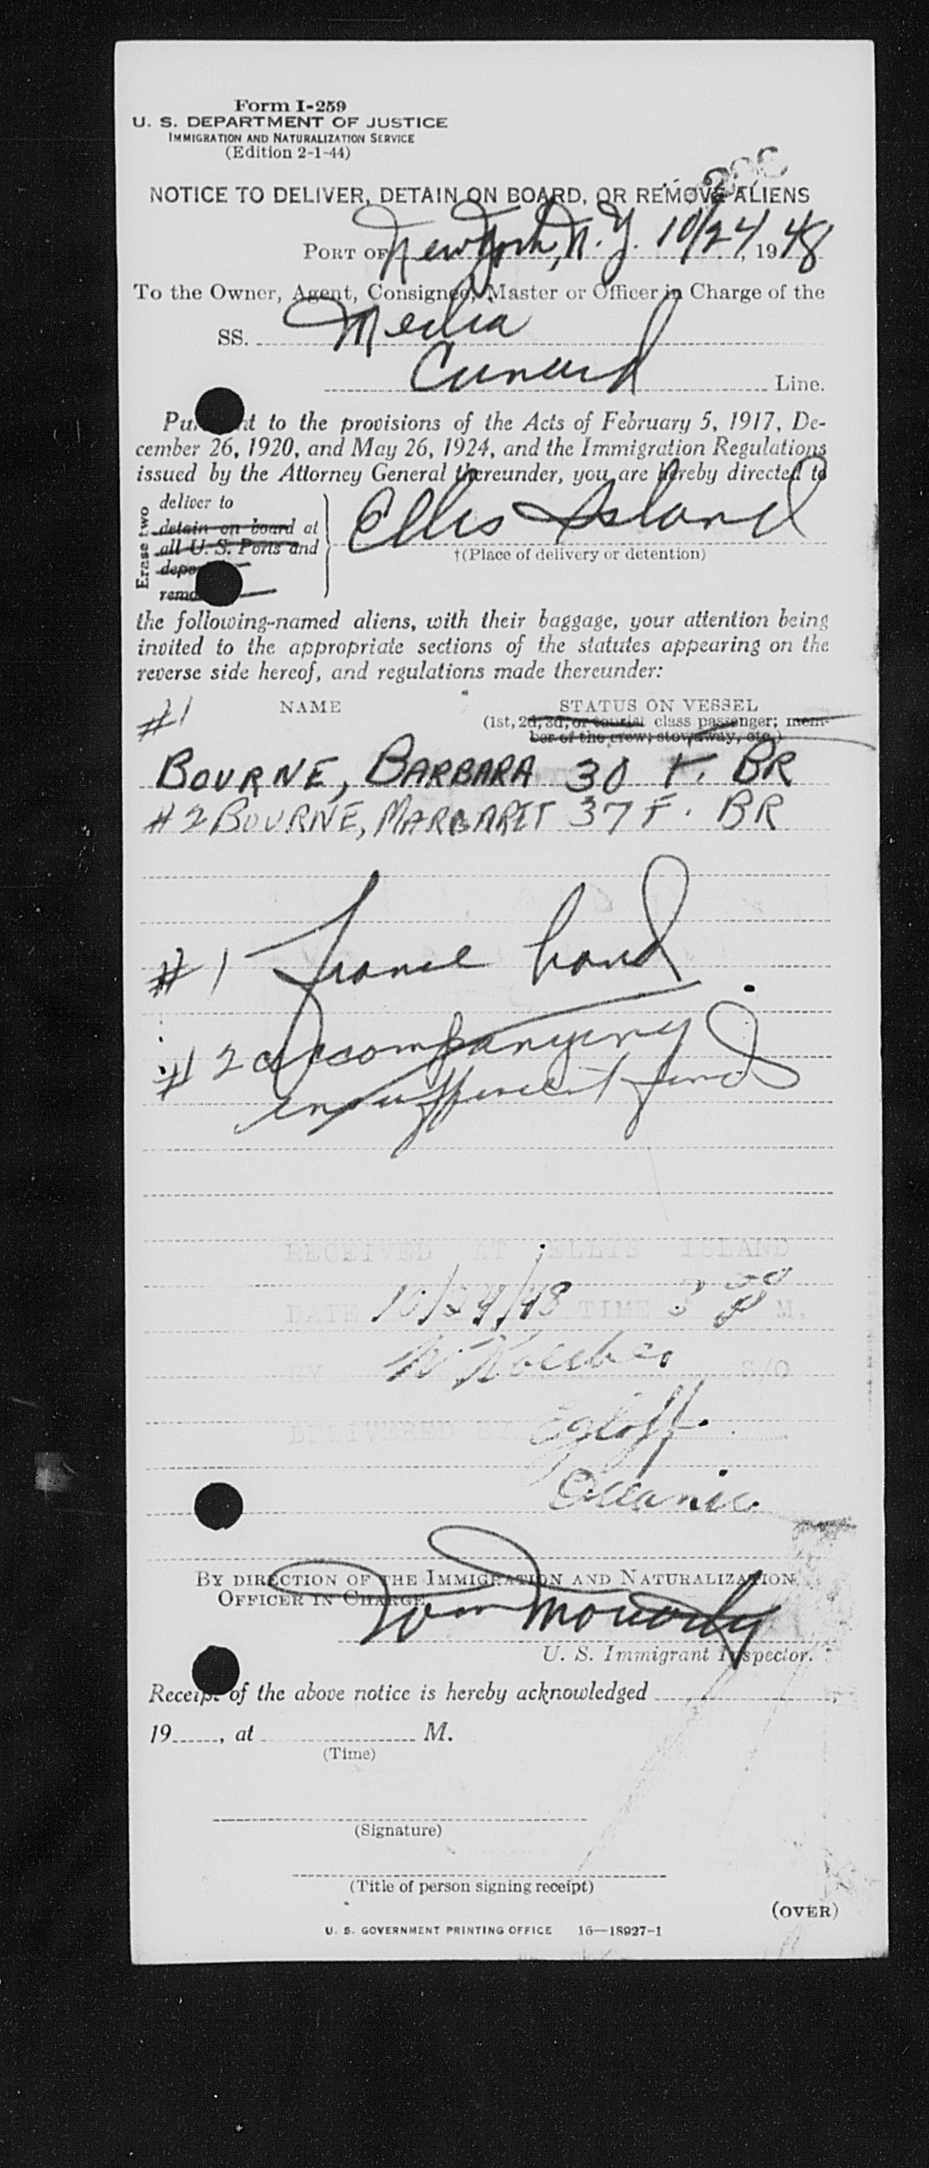 Form I-259
U. S. DEPARTMENT OF JUSTICE
IMMIGRATION AND NATURALIZATION SERVICE
(Edition 2-1-44)
NOTICE TO DELIVER, DETAIN ON BOARD, OR REMOVE ALIENS
PORT OF New York, N.Y. 10/24, 1948
To the Owner, Agent, Consignee, Master or Officer in Charge of the
SS. Media
Cunard Line.
Pursuant to the provisions of the Acts of February 5, 1917, De-
cember 26, 1920, and May 26, 1924, and the Immigration Regulations
issued by the Attorney General thereunder, you are hereby directed to
Erase two
deliver to
detain on board at
all U. S. Ports and
depo
remo
Ellis Island
†(Place of delivery or detention)
the following-named aliens, with their baggage, your attention being
invited to the appropriate sections of the statutes appearing on the
reverse side hereof, and regulations made thereunder:
#1 NAME STATUS ON VESSEL
(1st, 2d, 3d, or tourist class passenger; mem-
ber of the crew; stowaway, etc.)
BOURNE, BARBARA 30 F. BR
#2 BOURNE, MARGARET 37 F. BR
#1 hand
#2 accompanying
insufficient funds
RECEIVED AT ELLIS ISLAND
DATE 10/24/48 TIME 3 00 P M.
BY S/O
DELIVERED BY Egloff
Oceanic
BY DIRECTION OF THE IMMIGRATION AND NATURALIZATION
OFFICER IN CHARGE.
U. S. Immigrant Inspector.
Receipt of the above notice is hereby acknowledged
19 , at M.
(Time)
(Signature)
(Title of person signing receipt)
(OVER)
U. S. GOVERNMENT PRINTING OFFICE 16—18927-1